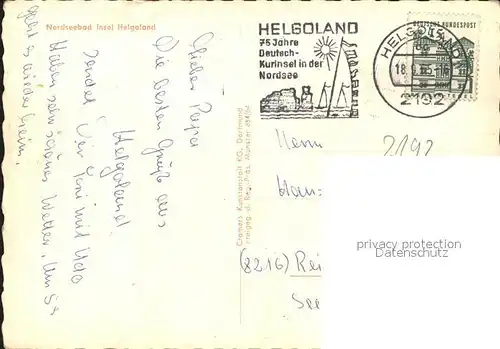 Nordseebad Insel Helgoland
Lieber Papa
Die besten Grüße aus
Helgoland
sendet Dir Toni mit Udo
Haben sehr schönes Wetter. Um 5h
geht es wieder heim.
HELGOLAND
75 Jahre
Deutsch-
Kurinsel in der
Nordsee
HELGOLAND
18.9.65-16
2192
DEUTSCHE BUNDESPOST
Cramers Kunstanstalt KG, Dortmund
Herrn
2192
privacy protection
(8216) Rei
See